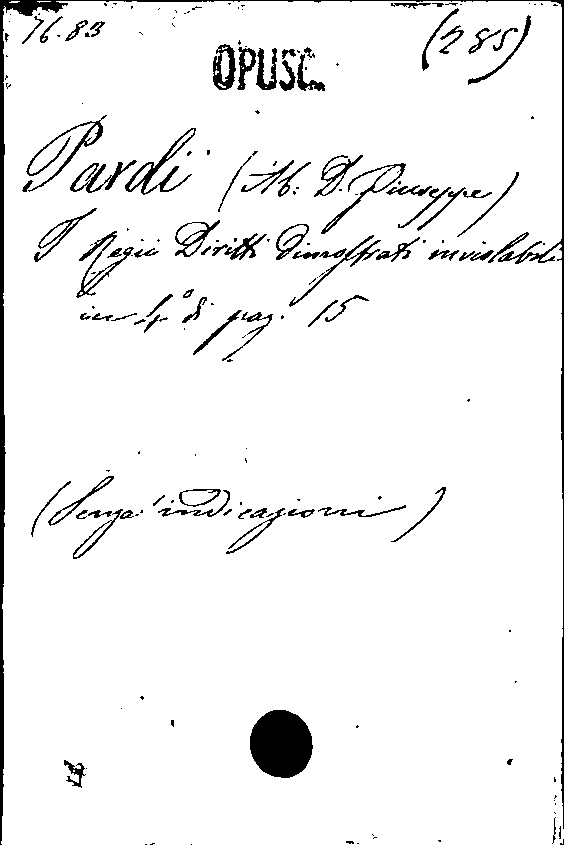 76.83 (285)
OPUSC.
Pardi (Ab: D. Giuseppe)
I Regii Diritti dimostrati inviolabili
in 4° di pag. 15
(Senza indicazioni)